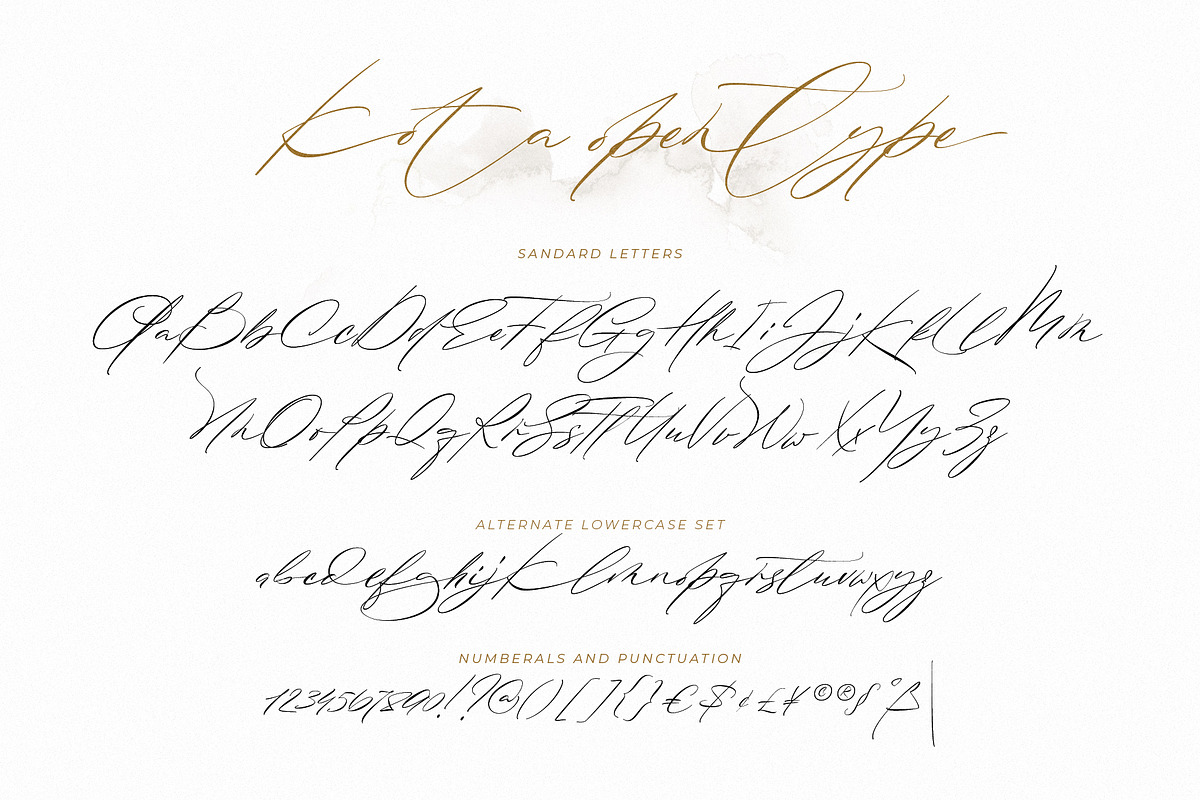 Kota openType
SANDARD LETTERS
AaBbCcDdEeFfGgHhIiJjKkLlMm
NnOoPpQqRrSsTtUuVvWwXxYyZz
ALTERNATE LOWERCASE SET
abcdefghijklmnopqrstuvwxyz
NUMBERALS AND PUNCTUATION
1234567890!?@()[]{}€$¢£¥©®§°ß|